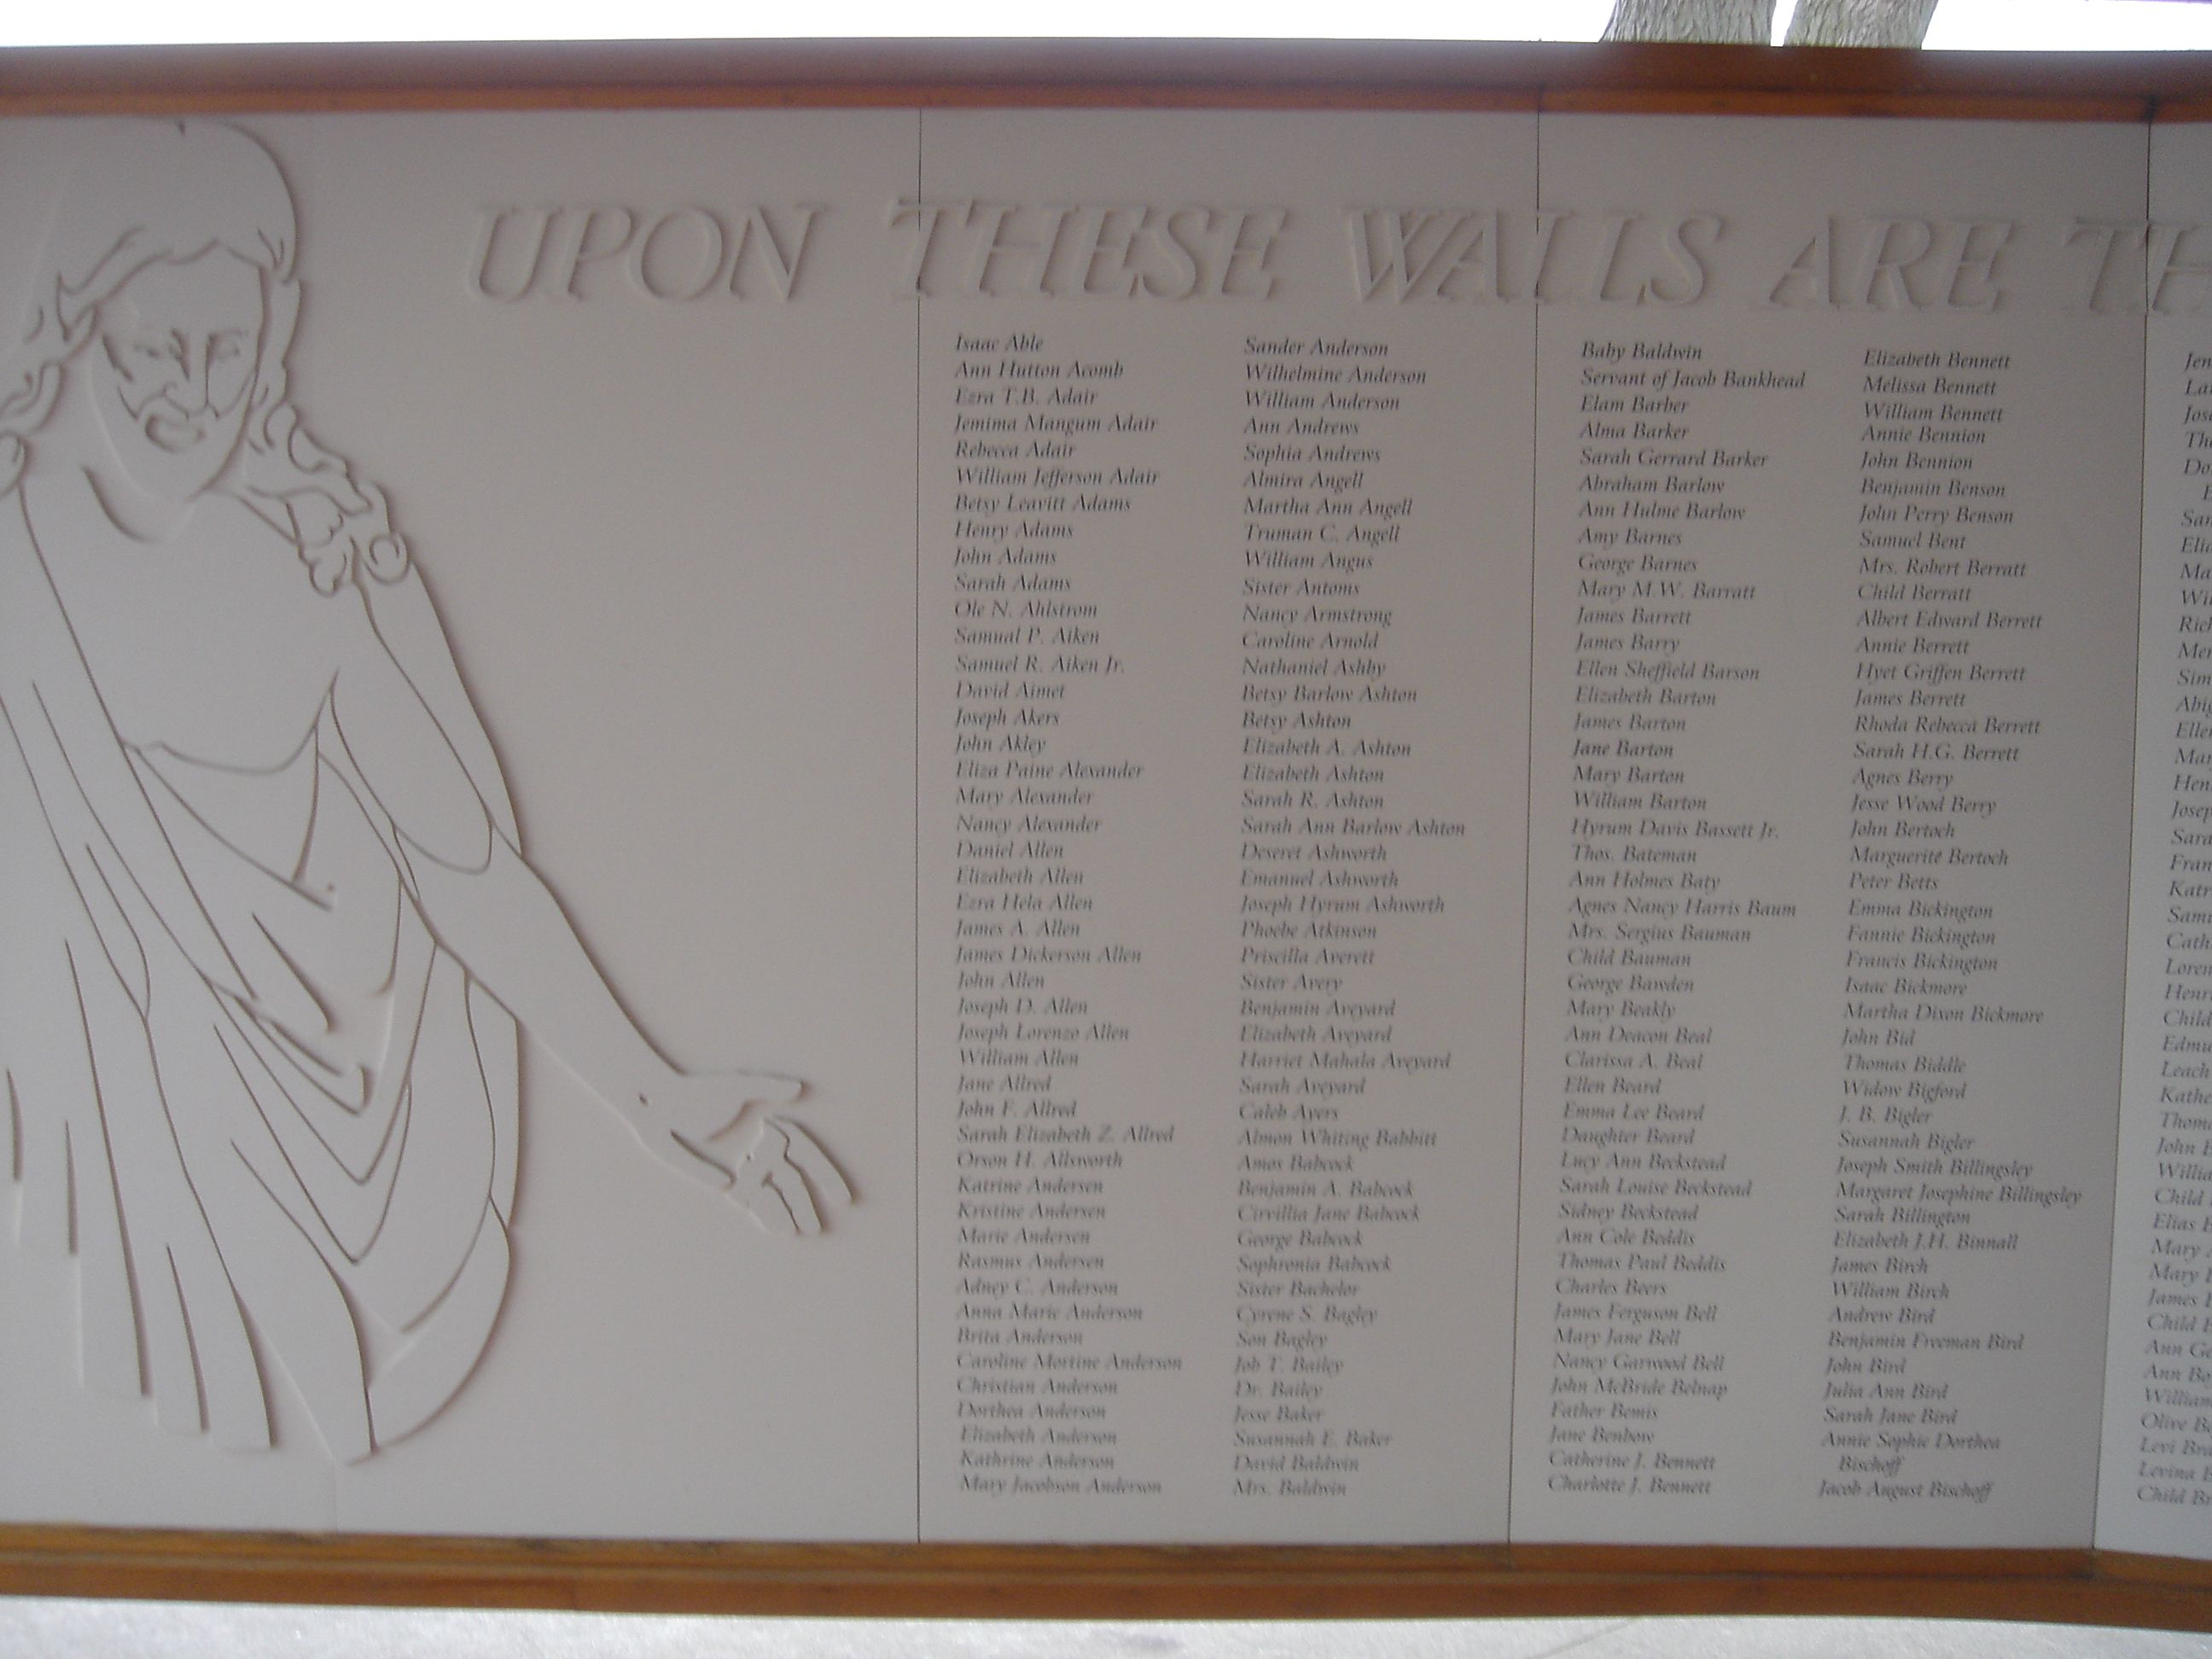 UPON THESE WALLS ARE TH
Isaac Able
Ann Hutton Acomb
Ezra T.B. Adair
Jemima Mangum Adair
Rebecca Adair
William Jefferson Adair
Betsy Leavitt Adams
Henry Adams
John Adams
Sarah Adams
Ole N. Ahlstrom
Samual P. Aiken
Samuel R. Aiken Jr.
David Aimet
Joseph Akers
John Akley
Eliza Paine Alexander
Mary Alexander
Nancy Alexander
Daniel Allen
Elizabeth Allen
Ezra Hela Allen
James A. Allen
James Dickerson Allen
John Allen
Joseph D. Allen
Joseph Lorenzo Allen
William Allen
Jane Allred
John F. Allred
Sarah Elizabeth Z. Allred
Orson H. Allsworth
Katrine Andersen
Kristine Andersen
Marie Andersen
Rasmus Andersen
Adney C. Anderson
Anna Marie Anderson
Brita Anderson
Caroline Mortine Anderson
Christian Anderson
Dorthea Anderson
Elizabeth Anderson
Kathrine Anderson
Mary Jacobson Anderson
Sander Anderson
Wilhelmine Anderson
William Anderson
Ann Andrews
Sophia Andrews
Almira Angell
Martha Ann Angell
Truman C. Angell
William Angus
Sister Antoms
Nancy Armstrong
Caroline Arnold
Nathaniel Ashby
Betsy Barlow Ashton
Betsy Ashton
Elizabeth A. Ashton
Elizabeth Ashton
Sarah R. Ashton
Sarah Ann Barlow Ashton
Deseret Ashworth
Emanuel Ashworth
Joseph Hyrum Ashworth
Phoebe Atkinson
Priscilla Averett
Sister Avery
Benjamin Aveyard
Elizabeth Aveyard
Harriet Mahala Aveyard
Sarah Aveyard
Caleb Ayers
Almon Whiting Babbitt
Amos Babcock
Benjamin A. Babcock
Cirvillia Jane Babcock
George Babcock
Sophronia Babcock
Sister Bachelor
Cyrene S. Bagley
Son Bagley
Job T. Bailey
Dr. Bailey
Jesse Baker
Susannah E. Baker
David Baldwin
Mrs. Baldwin
Baby Baldwin
Servant of Jacob Bankhead
Elam Barber
Alma Barker
Sarah Gerrard Barker
Abraham Barlow
Ann Hulme Barlow
Amy Barnes
George Barnes
Mary M.W. Barratt
James Barrett
James Barry
Ellen Sheffield Barson
Elizabeth Barton
James Barton
Jane Barton
Mary Barton
William Barton
Hyrum Davis Bassett Jr.
Thos. Bateman
Ann Holmes Baty
Agnes Nancy Harris Baum
Mrs. Sergius Bauman
Child Bauman
George Bawden
Mary Beakly
Ann Deacon Beal
Clarissa A. Beal
Ellen Beard
Emma Lee Beard
Daughter Beard
Lucy Ann Beckstead
Sarah Louise Beckstead
Sidney Beckstead
Ann Cole Beddis
Thomas Paul Beddis
Charles Beers
James Ferguson Bell
Mary Jane Bell
Nancy Garwood Bell
John McBride Belnap
Father Bemis
Jane Benbow
Catherine J. Bennett
Charlotte J. Bennett
Elizabeth Bennett
Melissa Bennett
William Bennett
Annie Bennion
John Bennion
Benjamin Benson
John Perry Benson
Samuel Bent
Mrs. Robert Berratt
Child Berratt
Albert Edward Berrett
Annie Berrett
Hyet Griffen Berrett
James Berrett
Rhoda Rebecca Berrett
Sarah H.G. Berrett
Agnes Berry
Jesse Wood Berry
John Bertoch
Marguerite Bertoch
Peter Betts
Emma Bickington
Fannie Bickington
Francis Bickington
Isaac Bickmore
Martha Dixon Bickmore
John Bid
Thomas Biddle
Widow Bigford
J. B. Bigler
Susannah Bigler
Joseph Smith Billingsley
Margaret Josephine Billingsley
Sarah Billington
Elizabeth J.H. Binnall
James Birch
William Birch
Andrew Bird
Benjamin Freeman Bird
John Bird
Julia Ann Bird
Sarah Jane Bird
Annie Sophie Dorthea
Bischoff
Jacob August Bischoff